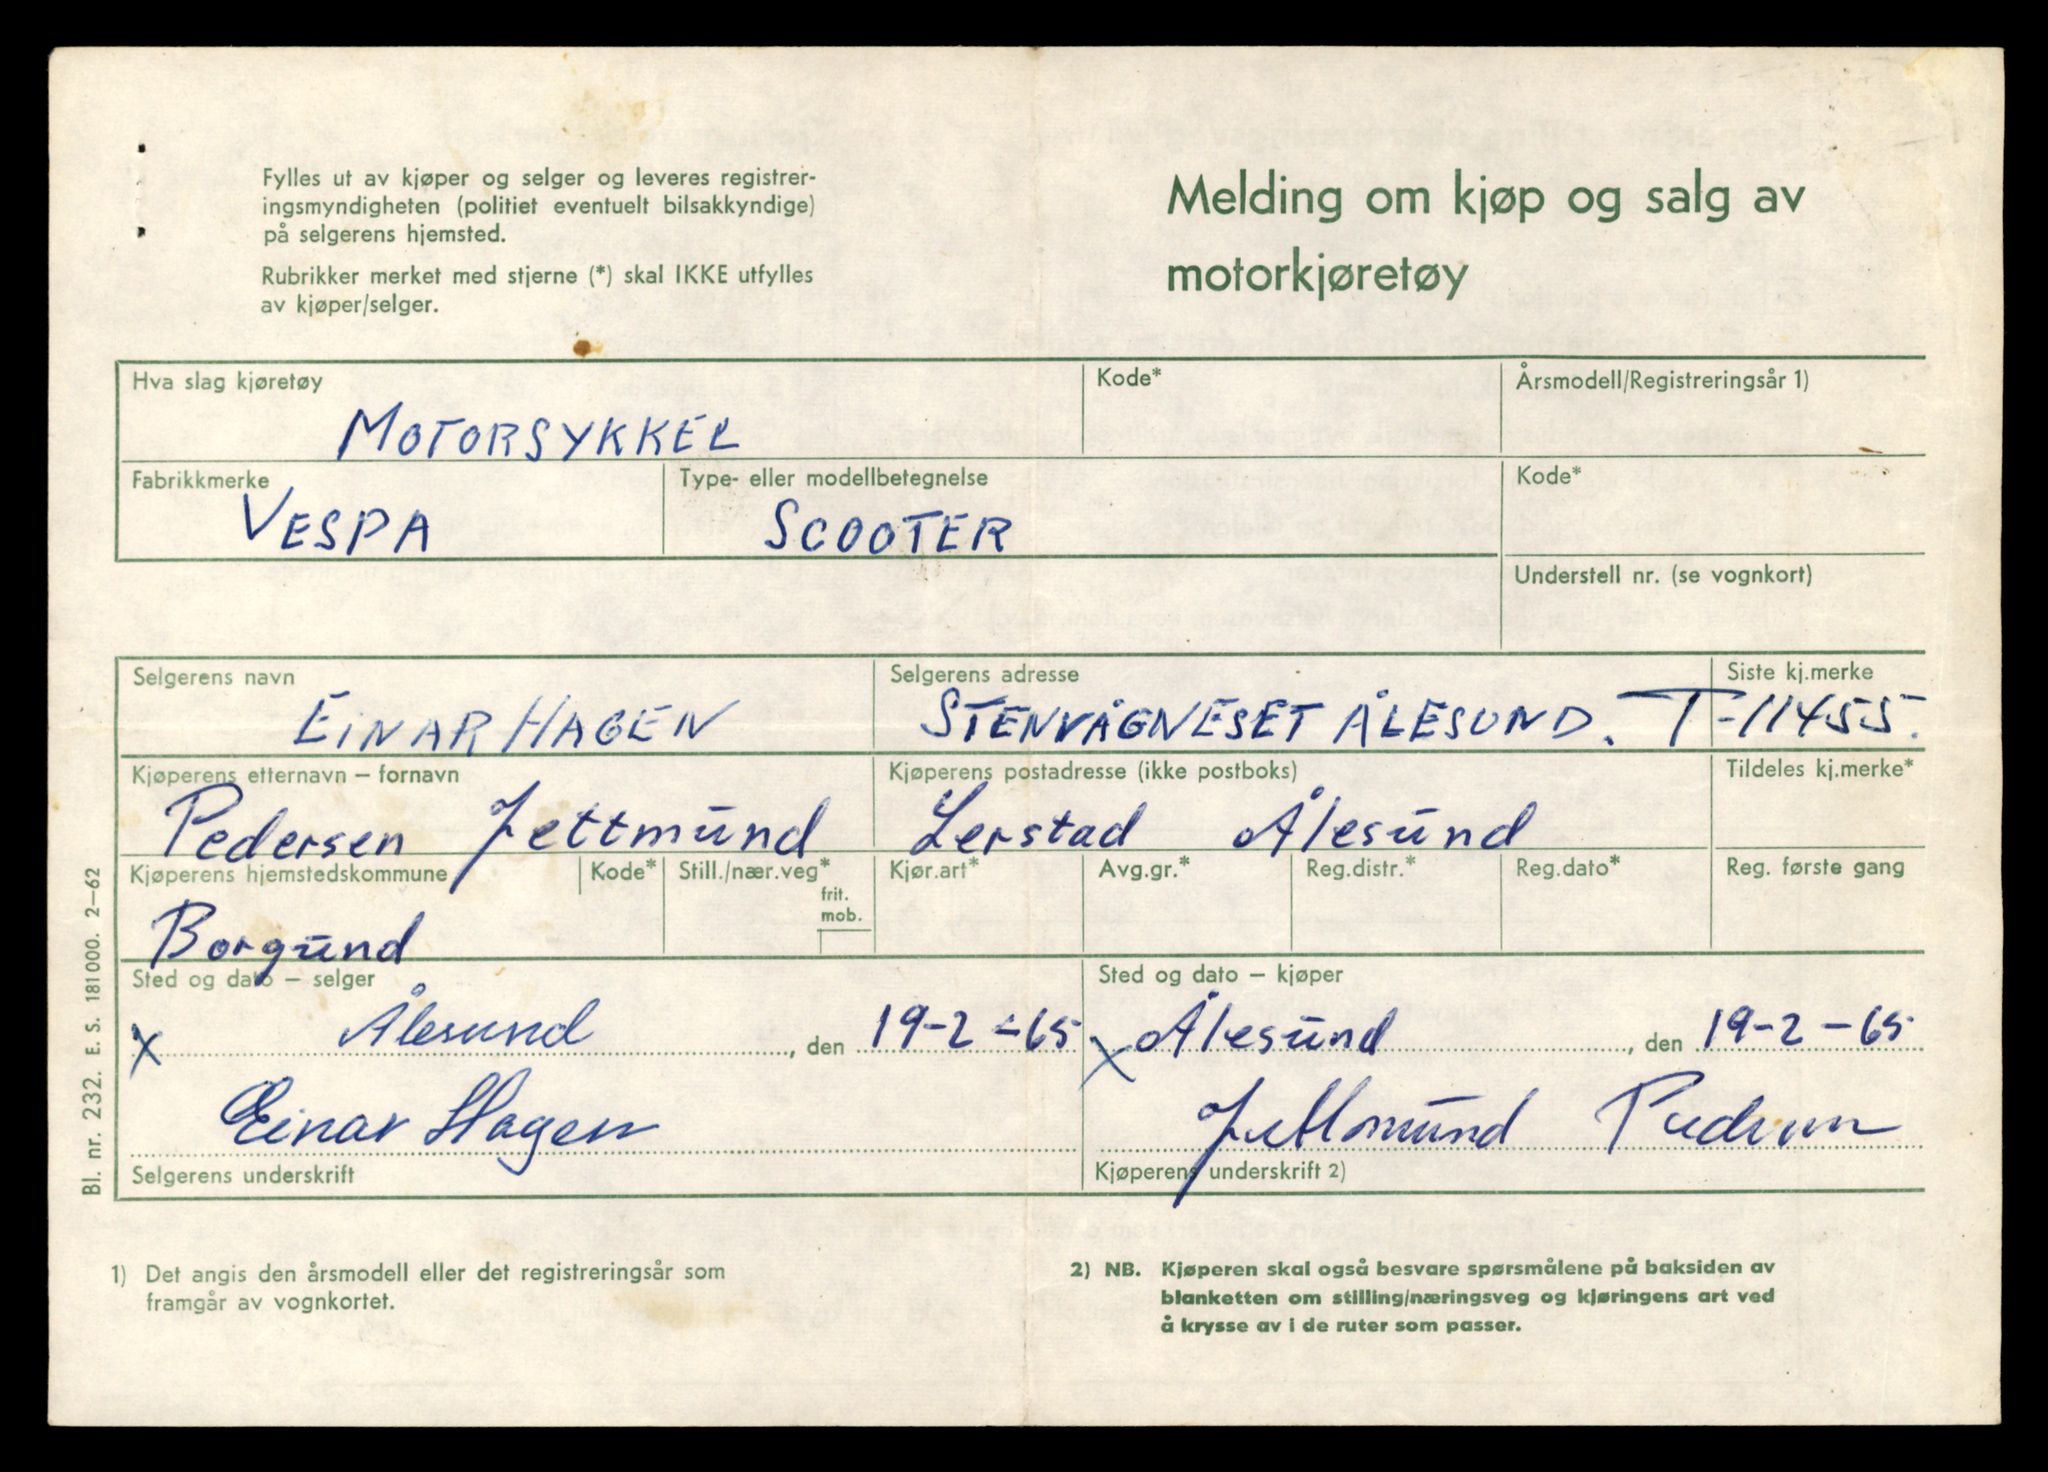 Fylles ut av kjøper og selger og leveres registrer-
ingsmyndigheten (politiet eventuelt bilsakkyndige)
på selgerens hjemsted.
Rubrikker merket med stjerne (*) skal IKKE utfylles
av kjøper/selger.
Melding om kjøp og salg av
motorkjøretøy
Hva slag kjøretøy
MOTORSYKKEL
Kode*
Årsmodell/Registreringsår 1)
Fabrikkmerke
VESPA
Type- eller modellbetegnelse
SCOOTER
Kode*
Understell nr. (se vognkort)
Selgerens navn
EINAR HAGEN
Selgerens adresse
STENVÅGNESET ÅLESUND.
Siste kj.merke
T-11455.
Kjøperens etternavn – fornavn
Pedersen Jettmund
Kjøperens postadresse (ikke postboks)
Lerstad Ålesund
Tildeles kj.merke*
Kjøperens hjemstedskommune
Borgund
Kode*
Still./nær.veg*
frit.
mob.
Kjør.art*
Avg.gr.*
Reg.distr.*
Reg.dato*
Reg. første gang
Sted og dato – selger
x Ålesund, den 19-2-65
Einar Hagen
Selgerens underskrift
Sted og dato – kjøper
x Ålesund, den 19-2-65
Jettmund Pedersen
Kjøperens underskrift 2)
Bl. nr. 232. E. S. 181000. 2–62
1) Det angis den årsmodell eller det registreringsår som
framgår av vognkortet.
2) NB. Kjøperen skal også besvare spørsmålene på baksiden av
blanketten om stilling/næringsveg og kjøringens art ved
å krysse av i de ruter som passer.